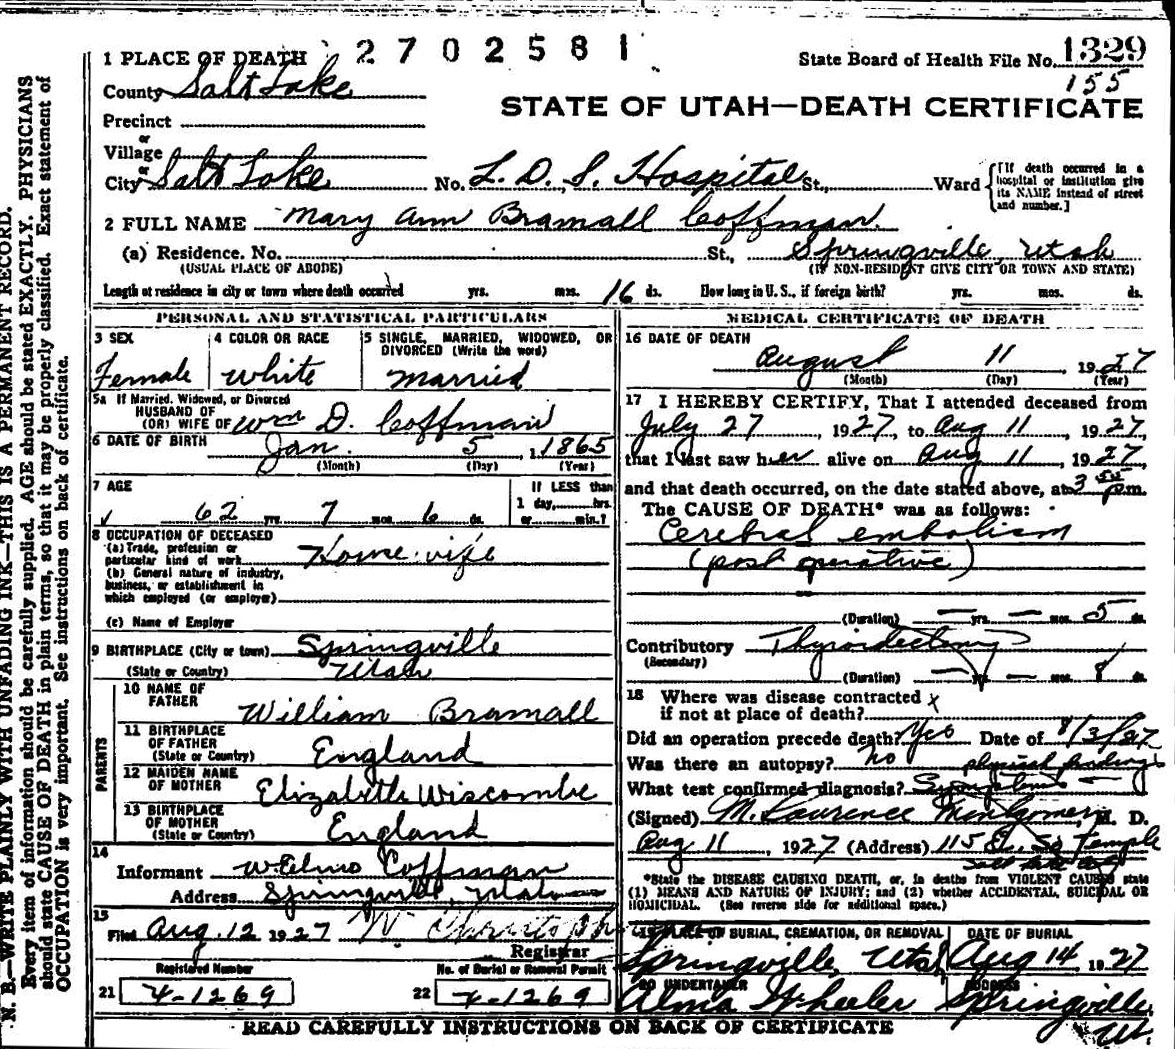 2702581
State Board of Health File No. 1329
155
1 PLACE OF DEATH
County Salt Lake
STATE OF UTAH—DEATH CERTIFICATE
Precinct
or
Village
or
City Salt Lake No. L. D. S. Hospital St., Ward [If death occurred in a hospital or institution give its NAME instead of street and number.]
2 FULL NAME Mary Ann Bramall Coffman
(a) Residence. No. St., Springville, Utah
(USUAL PLACE OF ABODE) (IF NON-RESIDENT GIVE CITY OR TOWN AND STATE)
Length of residence in city or town where death occurred yrs. mos. 16 ds. How long in U. S., if foreign birth? yrs. mos. ds.
PERSONAL AND STATISTICAL PARTICULARS
3 SEX
Female
4 COLOR OR RACE
White
5 SINGLE, MARRIED, WIDOWED, OR
DIVORCED (Write the word)
Married
5a If Married, Widowed, or Divorced
HUSBAND OF
(OR) WIFE OF Wm D. Coffman
6 DATE OF BIRTH Jan. 5, 1865
(Month) (Day) (Year)
7 AGE
62 yrs. 7 mos. 6 ds.
If LESS than
1 day, hrs.
or min.?
8 OCCUPATION OF DECEASED
(a) Trade, profession or
particular kind of work Housewife
(b) General nature of industry,
business, or establishment in
which employed (or employer)
(c) Name of Employer
9 BIRTHPLACE (City or town) Springville
(State or Country) Utah
PARENTS
10 NAME OF
FATHER William Bramall
11 BIRTHPLACE
OF FATHER
(State or Country) England
12 MAIDEN NAME
OF MOTHER Elizabeth Wiscombe
13 BIRTHPLACE
OF MOTHER
(State or Country) England
14
Informant Coffman
Address Springville, Utah
15
Filed Aug. 12 1927 W
Registrar
Registered Number
21 1269
No. of Burial or Removal Permit
22 1269
MEDICAL CERTIFICATE OF DEATH
16 DATE OF DEATH
August 11 1927
(Month) (Day) (Year)
17 I HEREBY CERTIFY, That I attended deceased from
July 27, 1927, to Aug 11, 1927,
that I last saw her alive on Aug 11, 1927,
and that death occurred, on the date stated above, at 3 55 p.m.
The CAUSE OF DEATH* was as follows:
Cerebral embolism
(post operative)
(Duration) — yrs. — mos. 5 ds.
Contributory Thyroidectomy
(Secondary)
(Duration) — — mos. 8 ds.
18 Where was disease contracted
if not at place of death? x
Did an operation precede death? Yes Date of 8/3/27
Was there an autopsy? no physical findings
What test confirmed diagnosis? Symptoms
(Signed) M. Laurence Montgomery, M. D.
Aug 11, 1927 (Address) 115 E. So Temple
Salt Lake City
*State the DISEASE CAUSING DEATH, or, in deaths from VIOLENT CAUSES state
(1) MEANS AND NATURE OF INJURY; and (2) whether ACCIDENTAL, SUICIDAL OR
HOMICIDAL. (See reverse side for additional space.)
19 PLACE OF BURIAL, CREMATION, OR REMOVAL
Springville, Utah
DATE OF BURIAL
Aug 14, 1927
20 UNDERTAKER
Alma Wheeler
ADDRESS
Springville
Ut.
READ CAREFULLY INSTRUCTIONS ON BACK OF CERTIFICATE
N. B.—WRITE PLAINLY WITH UNFADING INK—THIS IS A PERMANENT RECORD.
Every item of information should be carefully supplied. AGE should be stated EXACTLY. PHYSICIANS
should state CAUSE OF DEATH in plain terms, so that it may be properly classified. Exact statement of
OCCUPATION is very important. See instructions on back of certificate.